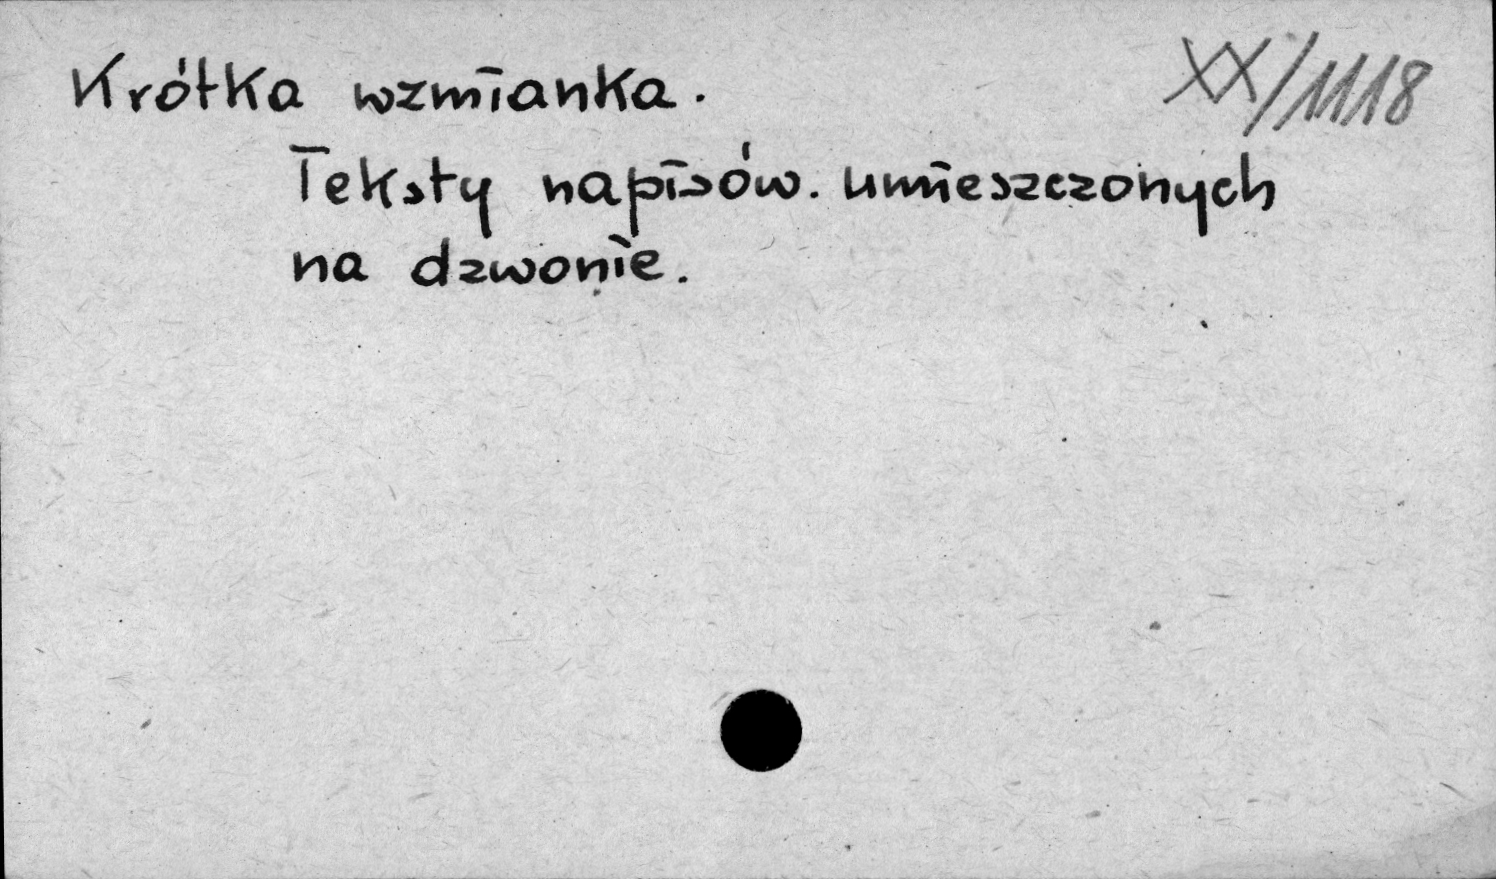 XX/1118
Krótka wzmianka.
Teksty napisów. umieszczonych
na dzwonie.